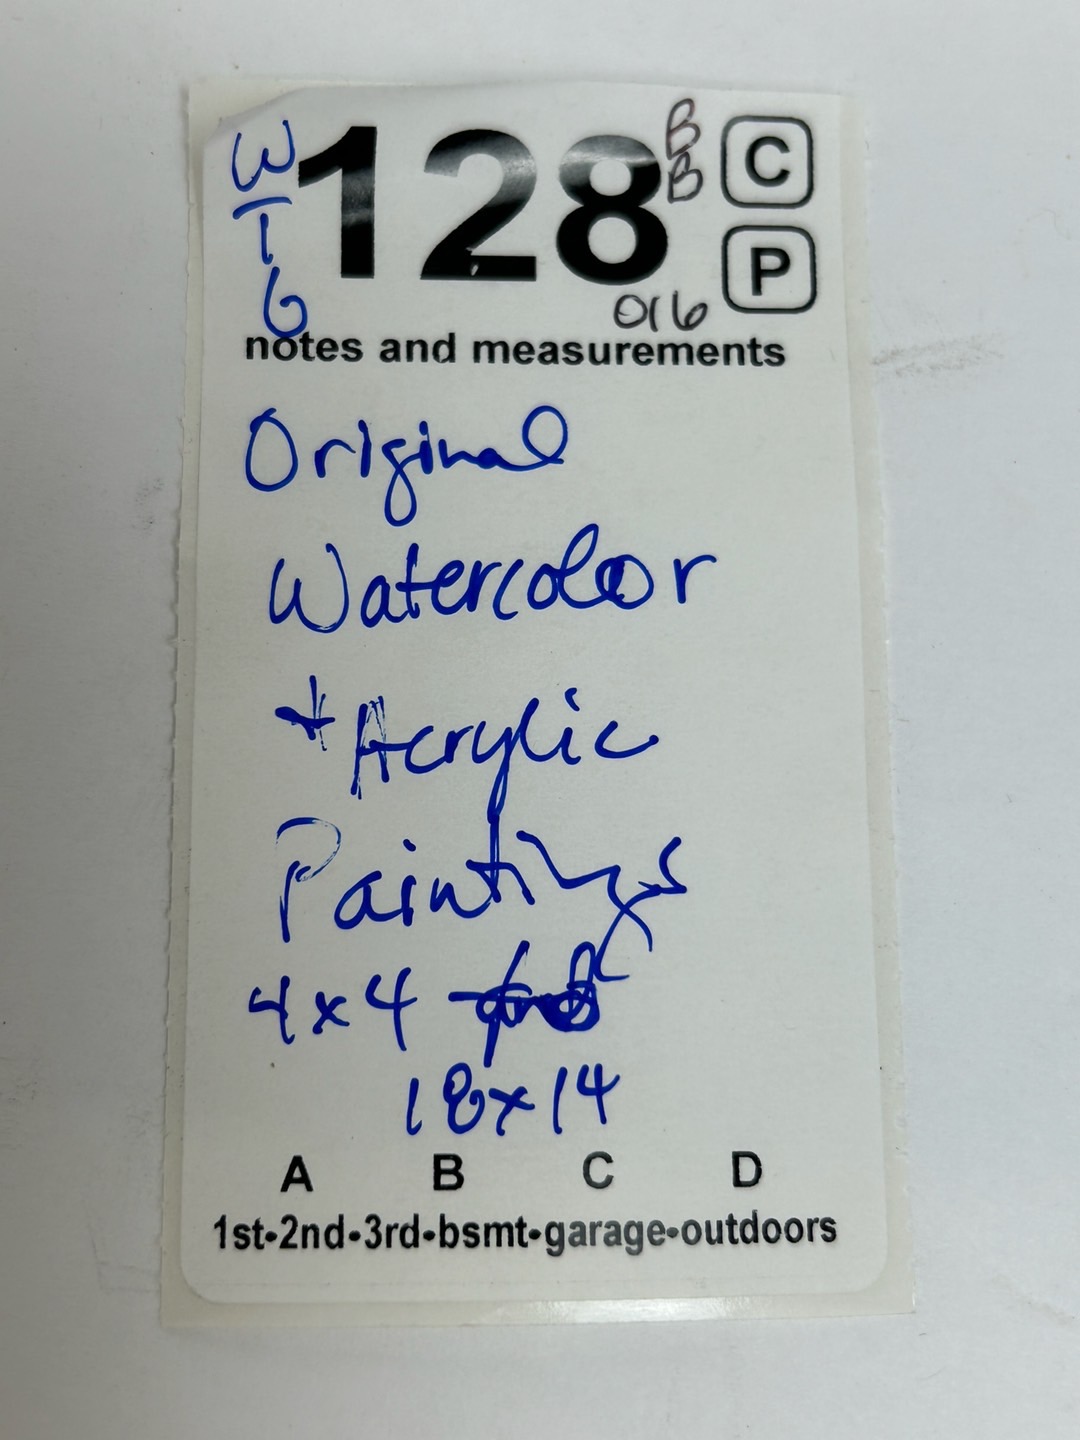 W
16
128
B
B
C
P
016
notes and measurements
Original
Watercolor
+ Acrylic
Paintings
4x4
18x14
A B C D
1st•2nd•3rd•bsmt•garage•outdoors